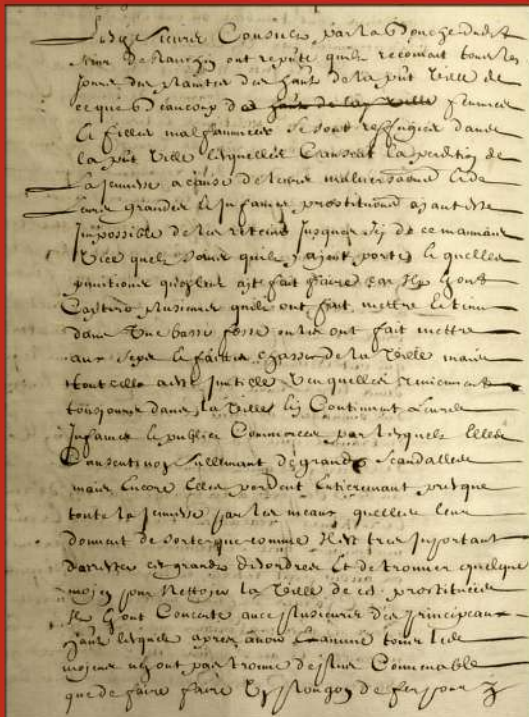 Lesdictz sieurs Consulz par la bouche dudit
sieur de Ranchin ont repute quilz recoivent tous les
jours des plaintes des habitans de la pnt Ville de
ce que beaucoup de femmes
et filles malfammées se sont reffugiées dans
la pnt Ville lesquelles Causent la perdition de
La jeunesse a cause de leurs
Leurs grandes et Infames prostitutions ayant este
Impossible de les retenir Jusques Icy de ce mauvais
Vice quels soins quilz y ayent portés et quelles
punitions quoy quilz ayt fait faire Car Ilz honts
plusieurs quilz ont fait mettre et tenir
dans Une basse fosse ont fait mettre
aux et faites chasser de la Ville mais
tout cella a est Inutille Veu quelles reviennent
tousjours dans la Ville Continuent Leurs
Infames et publics Commerces par lesquels Elles
Causent non sullemant de grands Scandalles
mais Encore Elles perdent Entieremant presque
toute la Jeunesse par les meaux quelles leur
donnent de sorte que comme Il est tres Important
darrester ces grands desordres Et de trouver quelque
moyen pour Nettoyer la Ville de ces prostituées
Ilz hont Concerté avec plusieurs des principeaux
habitans lesquels apres avoir Examiné tous les
moyens nen ont pas trouvé de plus Convenable
que de faire faire Un de fer pour y